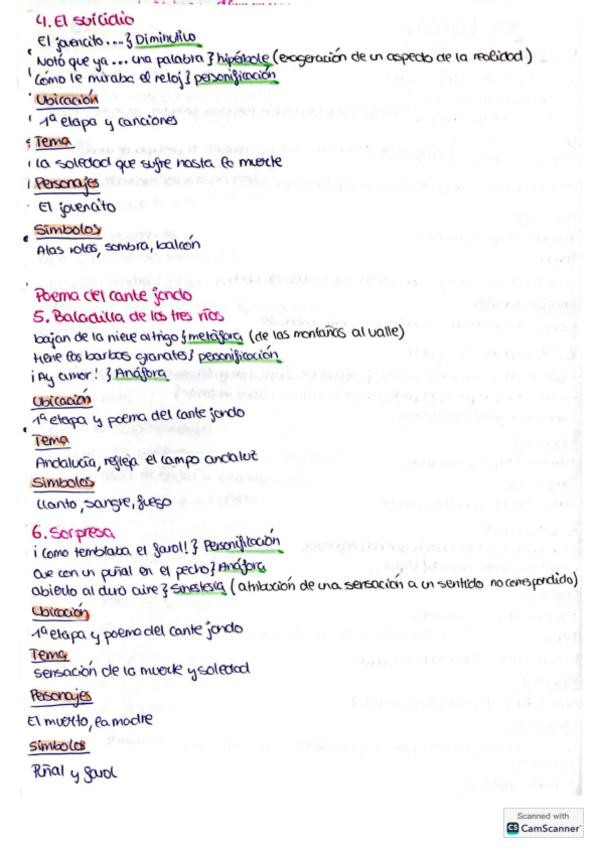 4. El suicidio
El jovencito....} Diminutivo
Notó que ya ... una palabra } hipérbole (exageración de un aspecto de la realidad)
Cómo le miraba el reloj } personificación
Ubicación
1ª etapa y canciones
Tema
La soledad que sufre hasta la muerte
Personajes
El jovencito
Símbolos
Alas rotas, sombra, balcón
Poema del cante jondo
5. Baladilla de los tres ríos
bajan de la nieve al trigo } metáfora (de las montañas al valle)
tiene las barbas granates } personificación
¡Ay amor! } Anáfora
Ubicación
1ª etapa y poema del cante jondo
Tema
Andalucía, refleja el campo andaluz
Símbolos
Llanto, sangre, fuego
6. Sorpresa
¡Como temblaba el farol! } Personificación
Que con un puñal en el pecho } Anáfora
abierto al duro aire } Sinestesia (atribución de una sensación a un sentido no correspondido)
Ubicación
1ª etapa y poema del cante jondo
Tema
sensación de la muerte y soledad
Personajes
El muerto, la madre
Símbolos
Puñal y farol
Scanned with
CS CamScanner